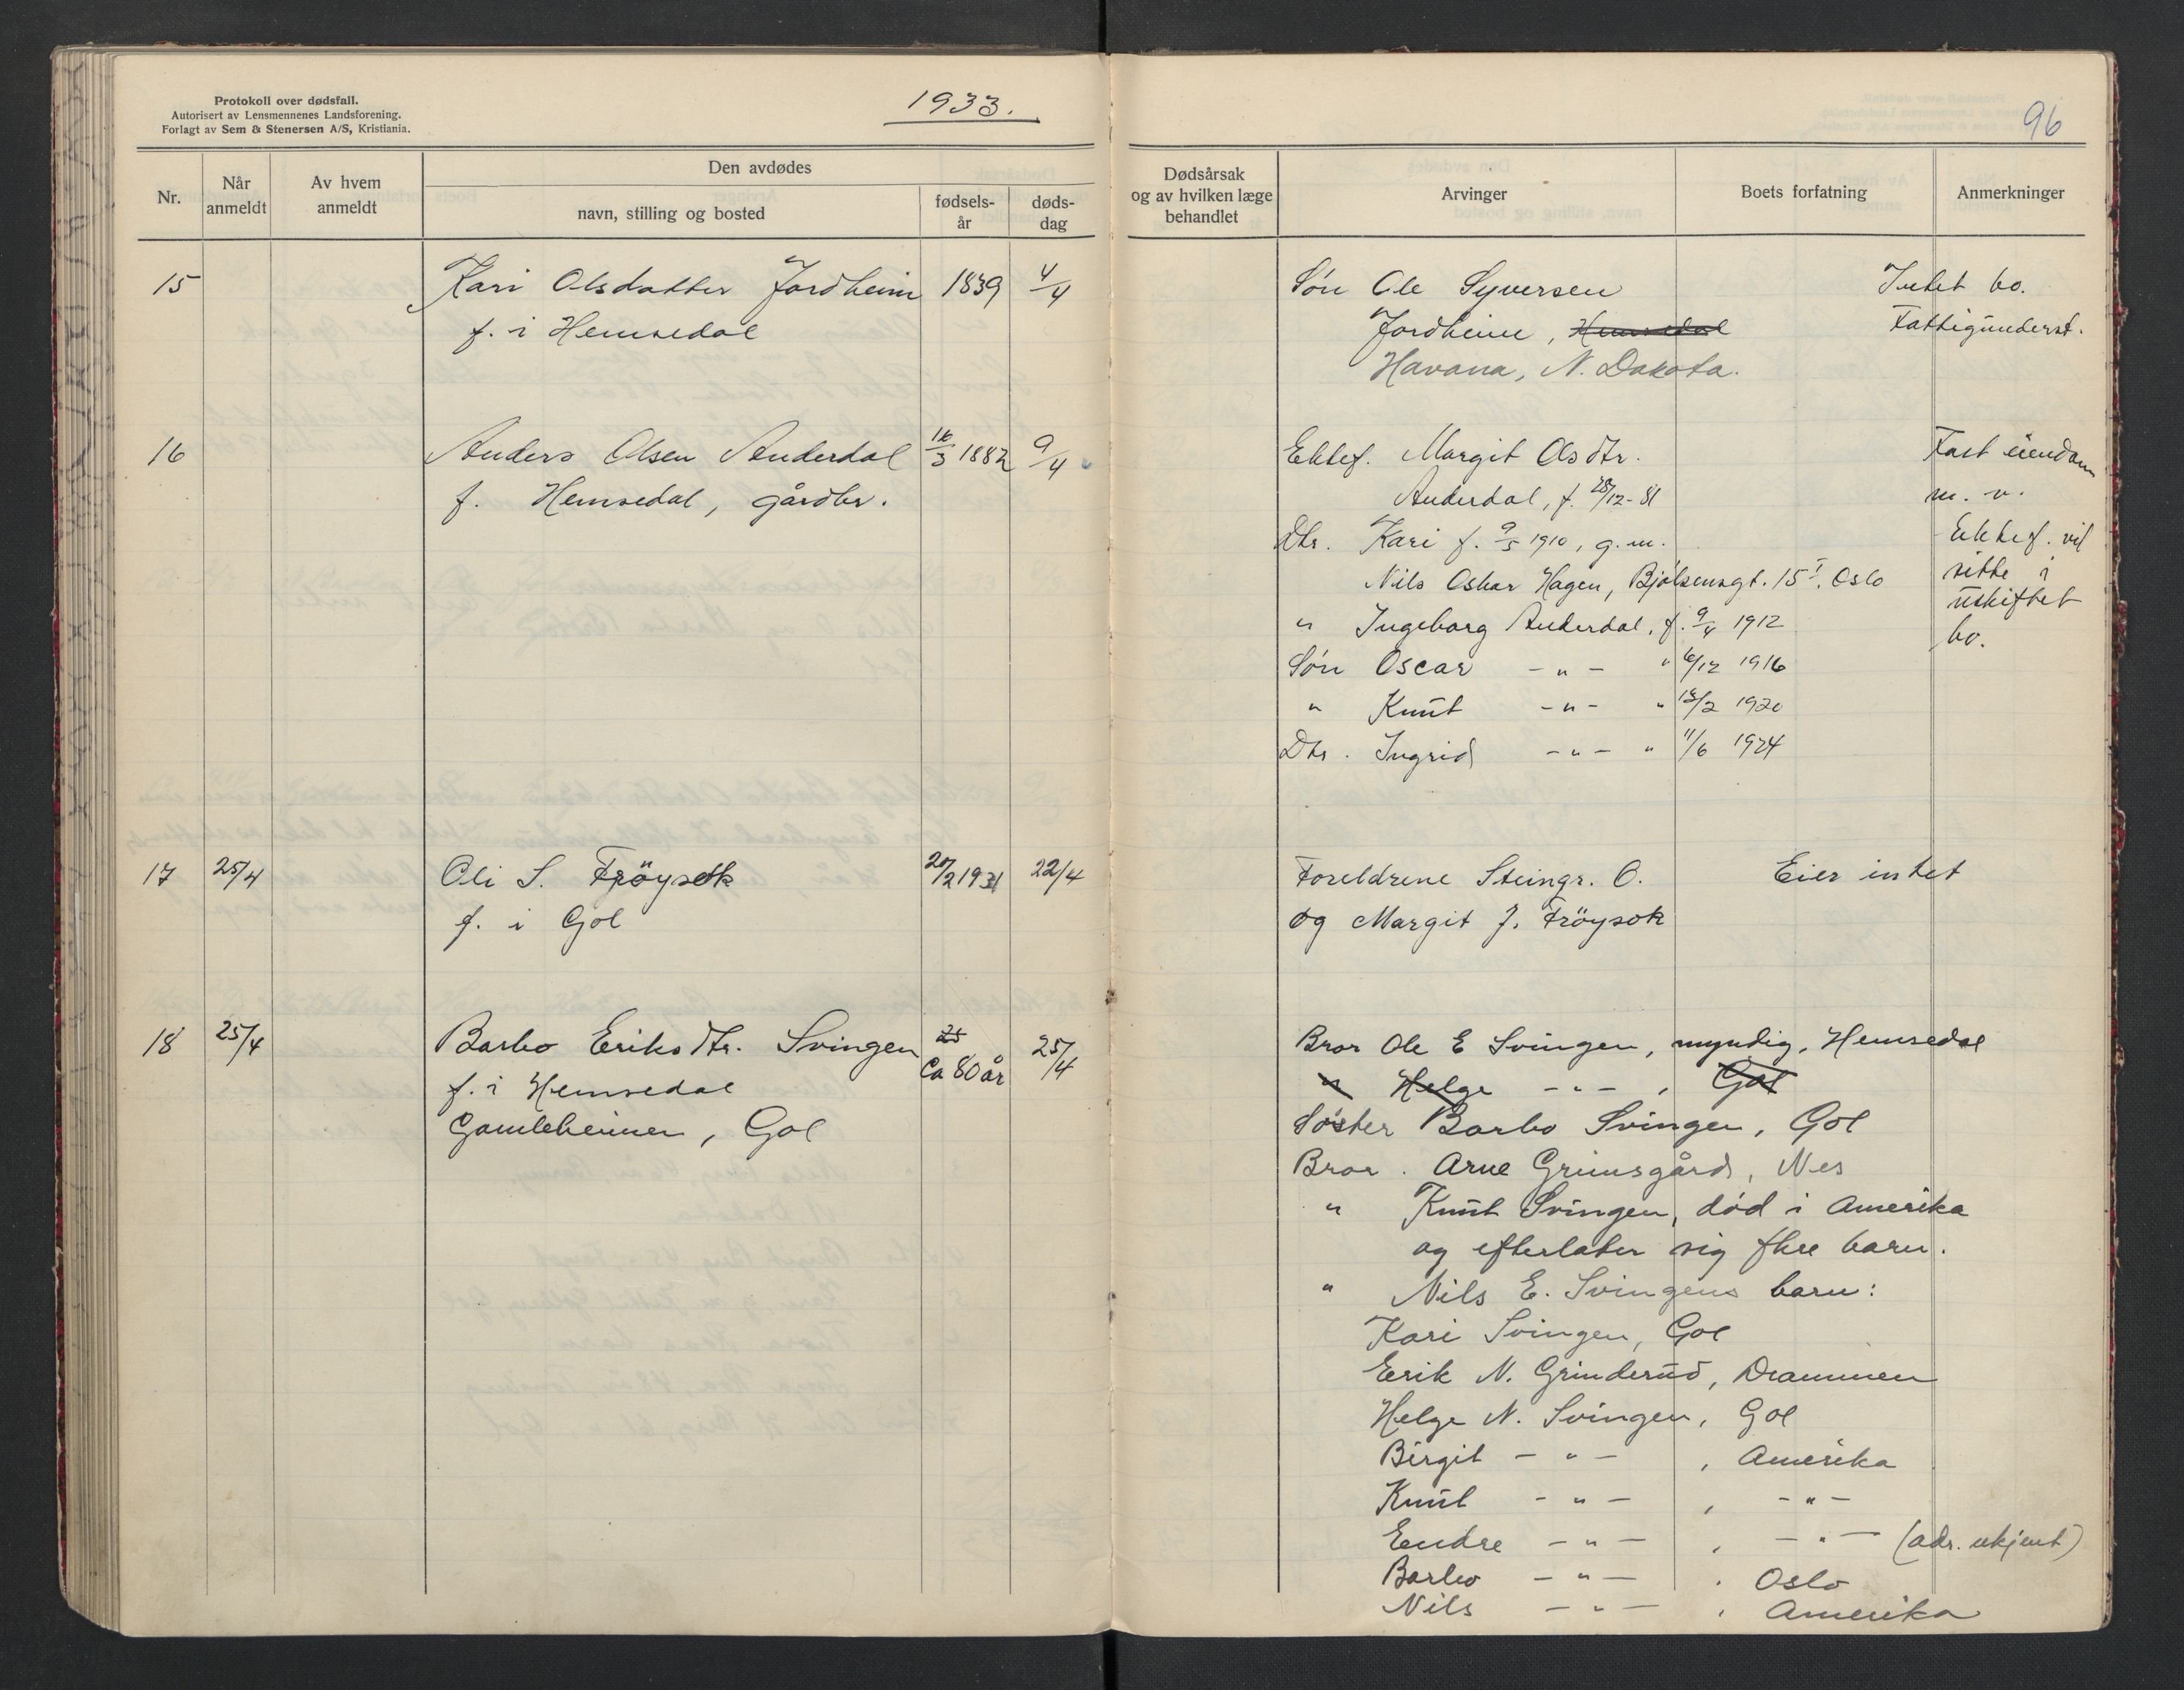 Protokoll over dødsfall.
Autorisert av Lensmennenes Landsforening.
Forlagt av Sem & Stenersen A/S, Kristiania.
1933.
Nr.
Når anmeldt
Av hvem anmeldt
Den avdødes
navn, stilling og bosted
fødsels-år
døds-dag
15 Kari Olsdatter Jordheim 1839 4/4
f. i Hemsedal
16 Anders Olsen Anderdal 16/3 1882 9/4
f. Hemsedal, gårdbr.
17 25/4 Oli S. Fröysok 20/2 1931 22/4
f. i Gol
18 25/4 Barbo Eriksdtr. Svingen 25 25/4
f. i Hemsedal Ca 80 år
Gamleheimen, Gol
96
Dødsårsak og av hvilken læge behandlet
Arvinger
Boets forfatning
Anmerkninger
Søn Ole Syversen Intet bo.
Jordheim, Hemsedal Fattigunderst.
Havana, N. Dakota.
Ektef. Margit Olsdtr. Fast eiendom
Anderdal, f. 28/12-81 m. v.
Dtr. Kari f. 9/5 1910, g.m. Ektef. vil
Nils Oskar Hagen, Bjølsensgt. 15 I. Oslo sitte i
uskiftet
" Ingeborg Anderdal, f. 9/4 1912 bo.
Søn Oscar -"- " 6/12 1916
" Knut -"- " 18/2 1920
Dtr. Ingrid -"- " 11/6 1924
Foreldrene Steingr. O. Eier intet
og Margit J. Fröysok
Bror Ole E Svingen, myndig, Hemsedal
" Helge -"-, Gol
Søster Barbo Svingen, Gol
Bror. Arne Grimsgård, Nes
" Knut Svingen, død i Amerika
og efterlater sig flere barn.
" Nils E. Svingens barn:
Kari Svingen, Gol
Erik N. Grinderud, Drammen
Helge N. Svingen, Gol
Birgit -"-, Amerika
Knut -"-, -"-
Endre -"-, -"- (adr. ukjent)
Barbo -"-, Oslo
Nils -"-, Amerika